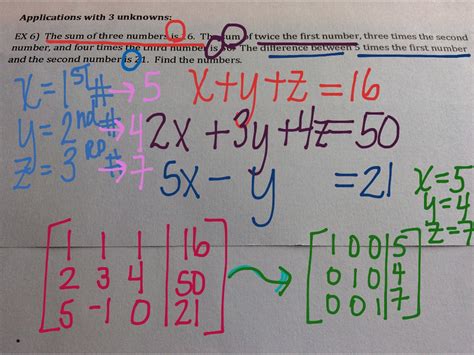 Applications with 3 unknowns:
EX 6) The sum of three numbers is 16. The sum of twice the first number, three times the second
number, and four times the third number is 50. The difference between 5 times the first number
and the second number is 21. Find the numbers.
x = 1st # → 5
y = 2nd # → 4
z = 3RD # → 7
x + y + z = 16
2x + 3y + 4z = 50
5x - y = 21
x = 5
y = 4
z = 7
1 1 1 | 16
2 3 4 | 50
5 -1 0 | 21
→
1 0 0 | 5
0 1 0 | 4
0 0 1 | 7